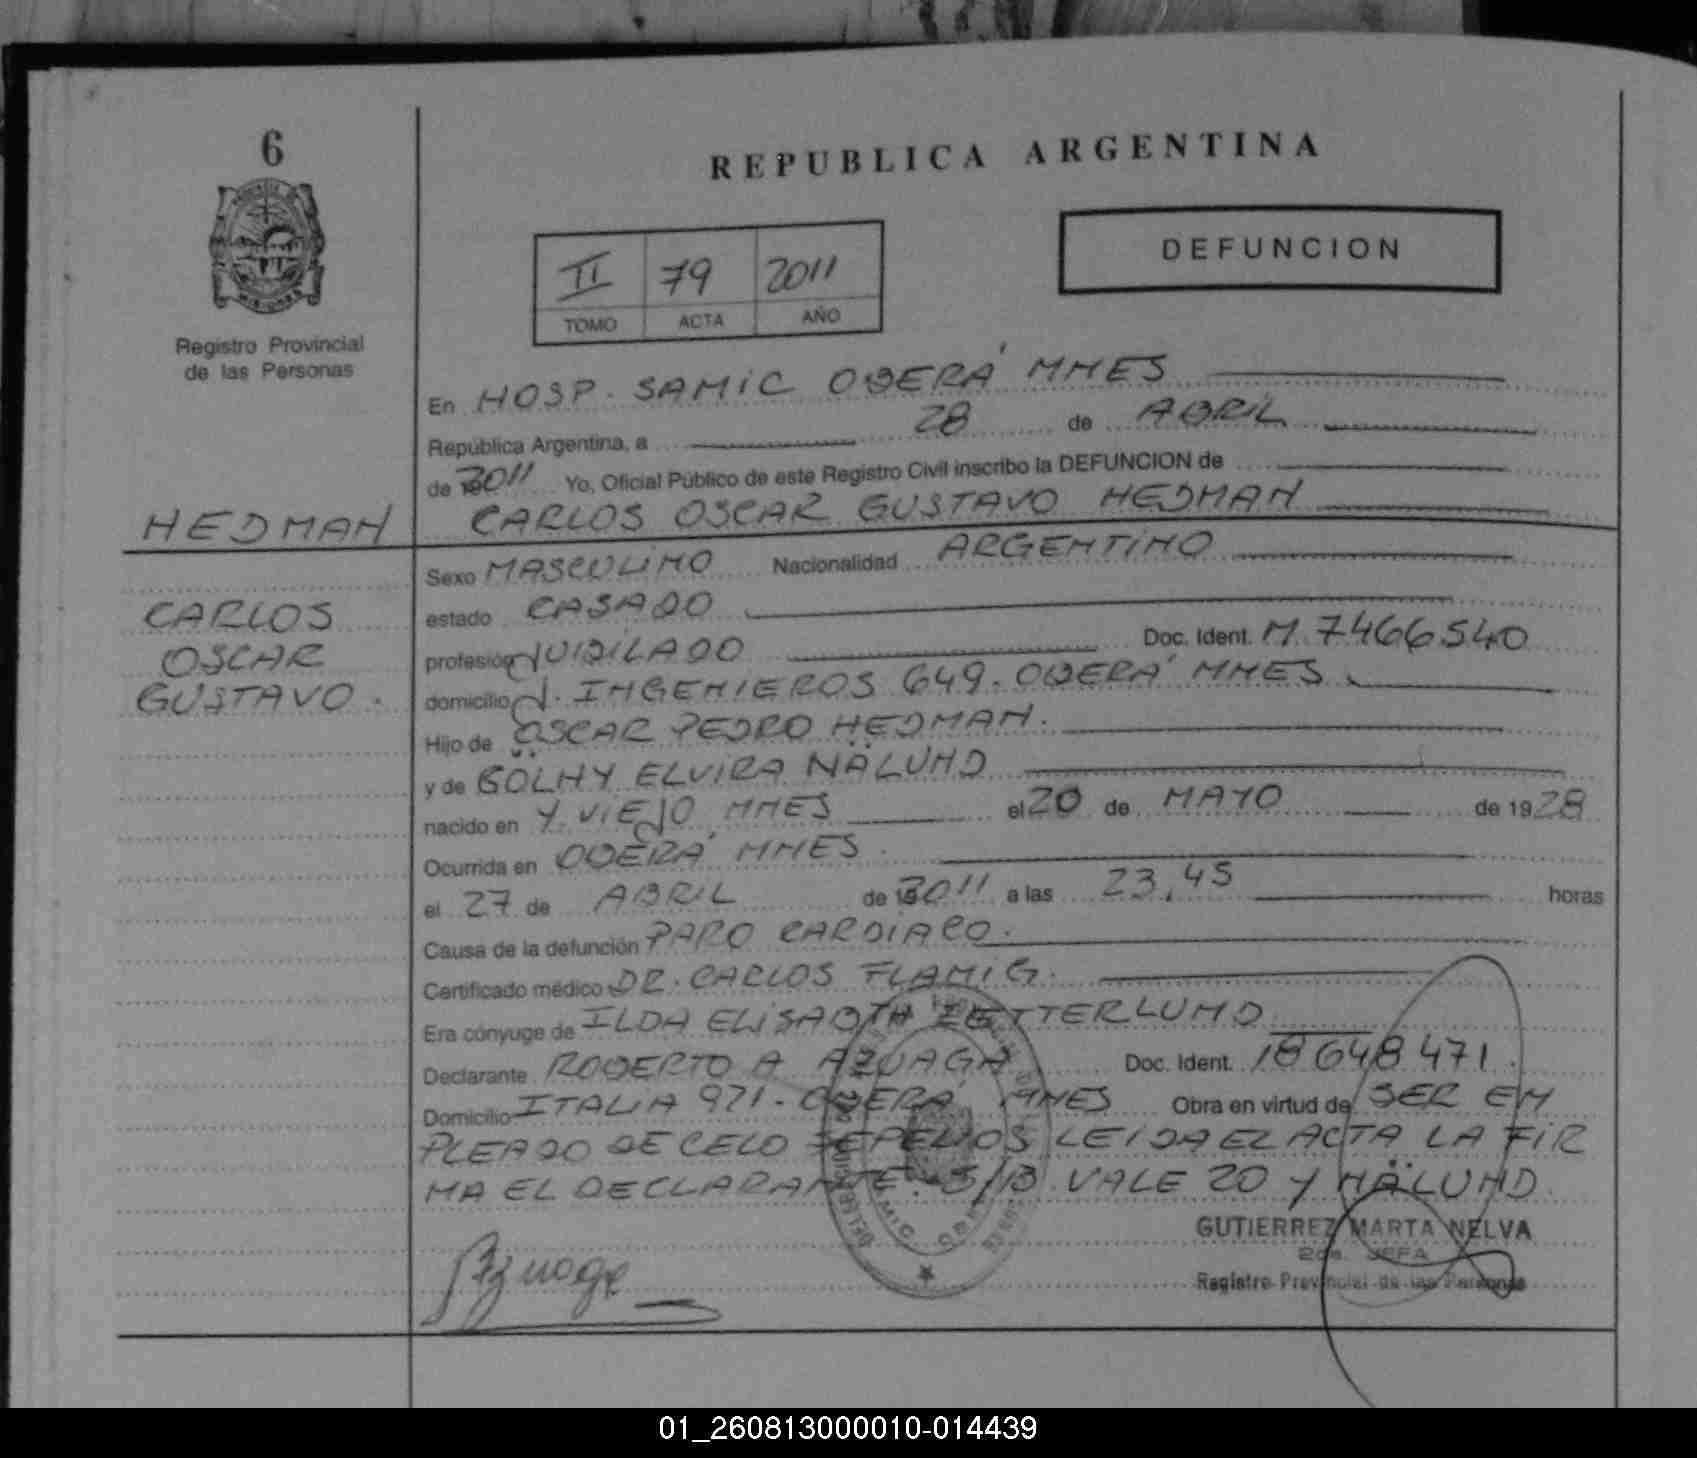 6
REPUBLICA ARGENTINA
DEFUNCION
II 79 2011
TOMO ACTA AÑO
Registro Provincial
de las Personas
En HOSP. SAMIC OBERÁ MNES
República Argentina, a 28 de ABRIL
de 2011 Yo, Oficial Público de este Registro Civil inscribo la DEFUNCION de
HEDMAN CARLOS OSCAR GUSTAVO HEDMAN
Sexo MASCULINO Nacionalidad ARGENTINO
CARLOS estado CASADO
OSCAR profesión JUBILADO Doc. Ident. M. 7466540
GUSTAVO. domicilio J. INGENIEROS 649. OBERÁ MNES
Hijo de OSCAR PEDRO HEDMAN.
y de GÖLHY ELVIRA NÄLUND
nacido en Y. VIEJO MNES el 20 de MAYO de 1928
Ocurrida en OBERÁ MNES.
el 27 de ABRIL de 2011 a las 23,45 horas
Causa de la defunción PARO CARDIACO.
Certificado médico DR. CARLOS FLAMIG.
Era cónyuge de ILDA ELISABTH ZETTERLUND
Declarante ROBERTO A AZUAGA Doc. Ident. 18648471.
Domicilio ITALIA 971. OBERÁ MNES Obra en virtud de SER EM
PLEADO DE CELO SEPELIOS LEIDA EL ACTA LA FIR
MA EL DECLARANTE. S/B VALE 20 Y NÄLUND.
Azuaga
GUTIERREZ MARTA NELVA
2da. JEFA
Registro Provincial de las Personas
01_260813000010-014439